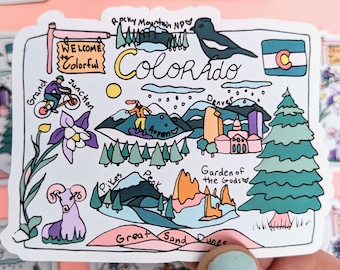 Rocky Mountain NP
WELCOME
to
Colorful
COLORADO
Grand
Junction
Denver
Aspen
Pikes Peak
Garden of
the Gods
Great Sand Dunes